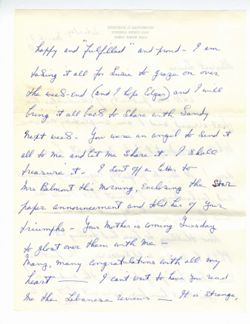 happy and "fulfilled" and proud - I am
taking it all for Susie to graze on over
the week-end (and I hope Elgar) and I will
bring it all back to share with Sandy
next week - You were an angel to send it
all to me and let me share it. I shall
treasure it - I sent off a letter to
Mrs Belmont this morning, enclosing the Star
paper announcement and told her of your
triumphs - Your Mother is coming Tuesday
to gloat over them with me -
Many, many congratulations with all my
heart - I can't wait to have you read
me the Lebanese reviews - It is strange,